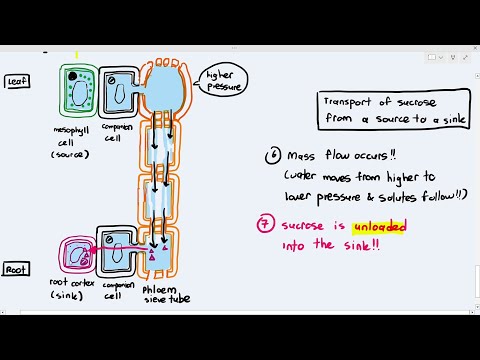 Leaf
higher
pressure
mesophyll
cell
(source)
companion
cell
Transport of sucrose
from a source to a sink
⑥ Mass flow occurs!!
(water moves from higher to
lower pressure & solutes follow!!)
⑦ sucrose is unloaded
into the sink!!
Root
root cortex
(sink)
companion
cell
Phloem
sieve tube